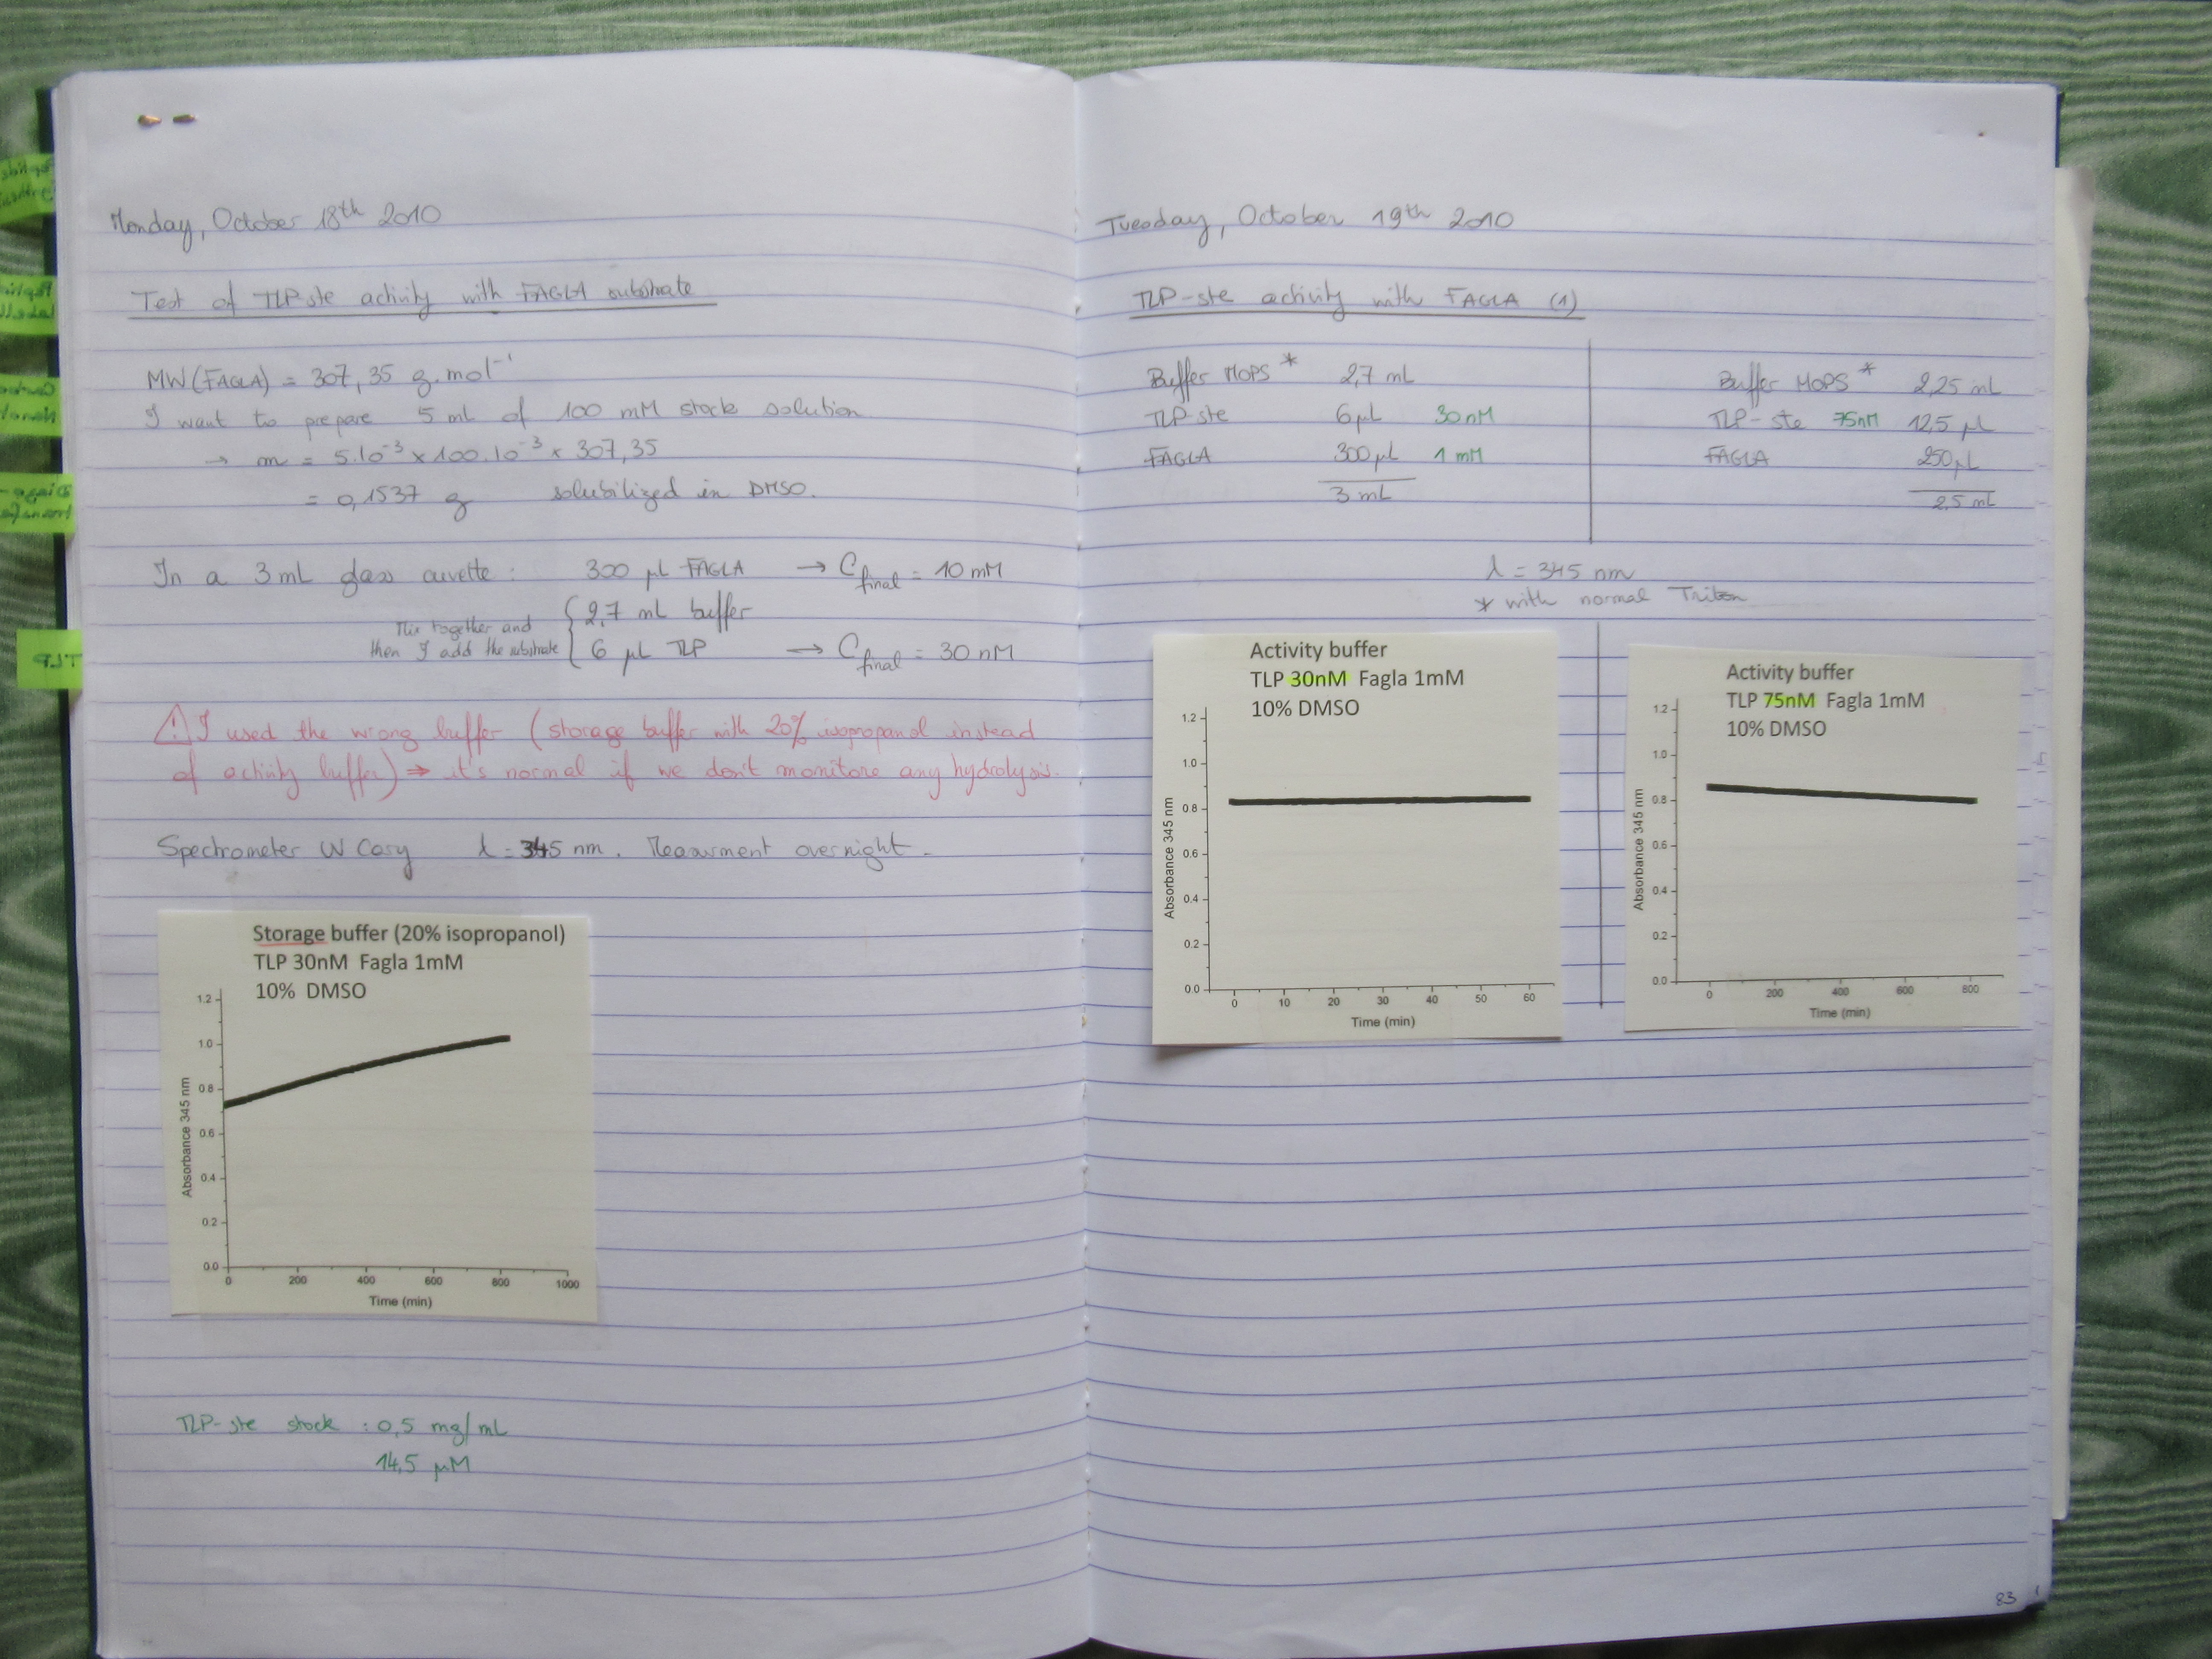 Monday, October 18th 2010
Test of TLP-ste activity with FAGLA substrate
MW(FAGLA) = 307,35 g.mol-1
I want to prepare 5 mL of 100 mM stock solution
→ m = 5.10-3 x 100.10-3 x 307,35
= 0,1537 g solubilized in DMSO.
In a 3mL glass cuvette : 300 µL FAGLA → Cfinal = 10 mM
Mix together and
then I add the substrate
2,7 mL buffer
6 µL TLP → Cfinal = 30 nM
⚠ I used the wrong buffer (storage buffer with 20% isopropanol instead
of activity buffer) ⇒ it's normal if we don't monitore any hydrolysis.
Spectrometer UV Cary λ = 345 nm. Measurment overnight.
Storage buffer (20% isopropanol)
TLP 30nM Fagla 1mM
10% DMSO
1.2
1.0
0.8
0.6
0.4
0.2
0.0
Absorbance 345 nm
0 200 400 600 800 1000
Time (min)
TLP-ste stock : 0,5 mg/mL
14,5 µM
TLP
Tuesday, October 19th 2010
TLP-ste activity with FAGLA (1)
Buffer MOPS * 2,7 mL
TLP-ste 6µL 30nM
FAGLA 300µL 1 mM
3 mL
Buffer MOPS * 2,25 mL
TLP-ste 75nM 12,5 µL
FAGLA 250µL
2,5 mL
λ = 345 nm
* with normal Triton
Activity buffer
TLP 30nM Fagla 1mM
10% DMSO
1.2
1.0
0.8
0.6
0.4
0.2
0.0
Absorbance 345 nm
0 10 20 30 40 50 60
Time (min)
Activity buffer
TLP 75nM Fagla 1mM
10% DMSO
1.2
1.0
0.8
0.6
0.4
0.2
0.0
Absorbance 345 nm
0 200 400 600 800
Time (min)
83